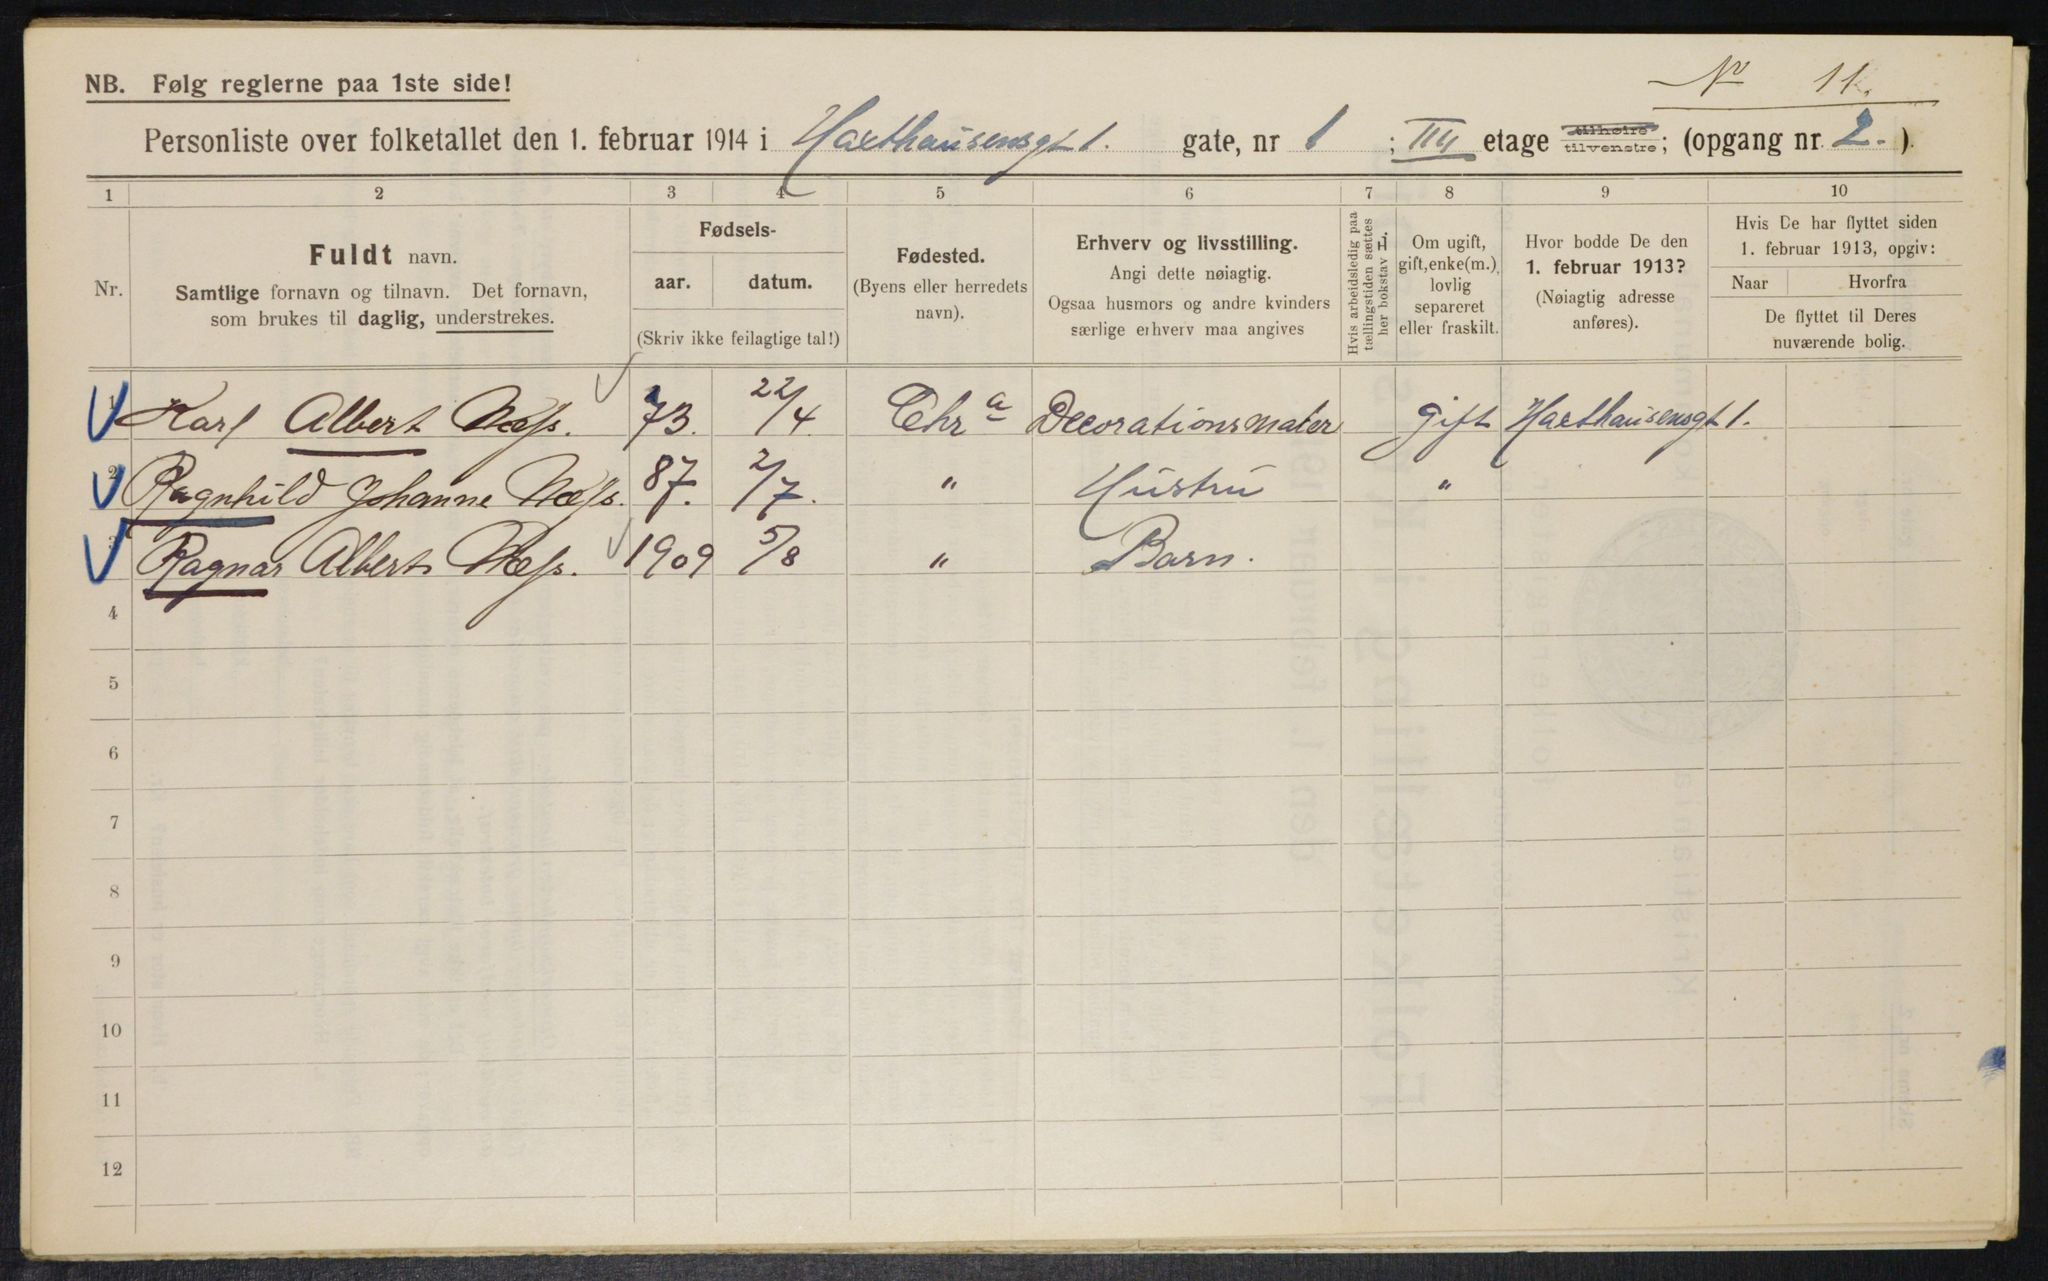 NB. Følg reglerne paa 1ste side!
No 11.
Personliste over folketallet den 1. februar 1914 i Haxthausensgt 1. gate, nr 1 ; III etage tilhøire tilvenstre; (opgang nr. 2. ).
1 2 3 4 5 6 7 8 9 10
Nr.
Fuldt navn.
Samtlige fornavn og tilnavn. Det fornavn,
som brukes til daglig, understrekes.
Fødsels-
aar. datum.
(Skriv ikke feilagtige tal!)
Fødested.
(Byens eller herredets
navn).
Erhverv og livsstilling.
Angi dette nøiagtig.
Ogsaa husmors og andre kvinders
særlige erhverv maa angives
Hvis arbeidsledig paa
tællingstiden sættes
her bokstav L.
Om ugift,
gift, enke(m.),
lovlig
separeret
eller fraskilt.
Hvor bodde De den
1. februar 1913?
(Nøiagtig adresse
anføres).
Hvis De har flyttet siden
1. februar 1913, opgiv:
Naar Hvorfra
De flyttet til Deres
nuværende bolig.
1 Karl Albert Næss. 73. 22/4. Chra Decorationsmaler gift Haxthausensgt 1.
2 Ragnhild Johanne Næss. 87. 2/7. " Hustru "
3 Ragnar Albert Næss. 1909 5/8 " Barn.
4
5
6
7
8
9
10
11
12